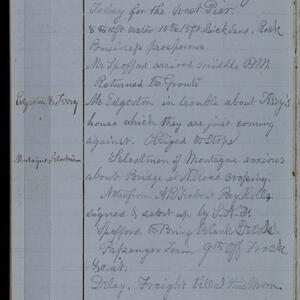 Today for the West Pier.
8 to 10 ft water 10 to 15 ft Quick Sand. Rock
Business prosperous.
Mr Spofford arrived middle P.M.
Returned to Grouts
Edgerton & Torrey
Mr Edgerton in trouble about Torry's
house which they are just coming
against. Obliged to Stop
Montague Selectmen
Selectmen of Montague anxious
about Bridge at Road crossing.
Notes from A.R. Pay Rolls
signed & sent up by S.K.H.
Spofford to Bring Blank Deeds.
Passenger Train 9th off Track
&c at.
Delay. Freight till this Morn.